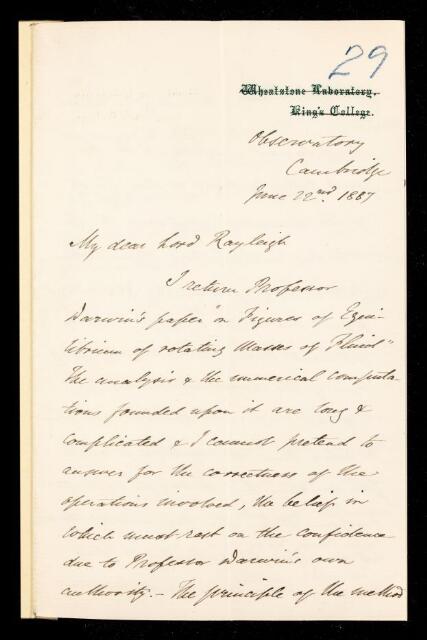 29
Wheatstone Laboratory,
King's College.
Observatory
Cambridge
June 22nd. 1887
My dear Lord Rayleigh
I return Professor
Darwin's paper "on Figures of Equi-
librium of rotating Masses of Fluid"
The analysis & the numerical computa-
tions founded upon it are long &
complicated & I cannot pretend to
answer for the correctness of the
operations involved, the belief in
which must rest on the confidence
due to Professor Darwin's own
authority. - The principle of the method